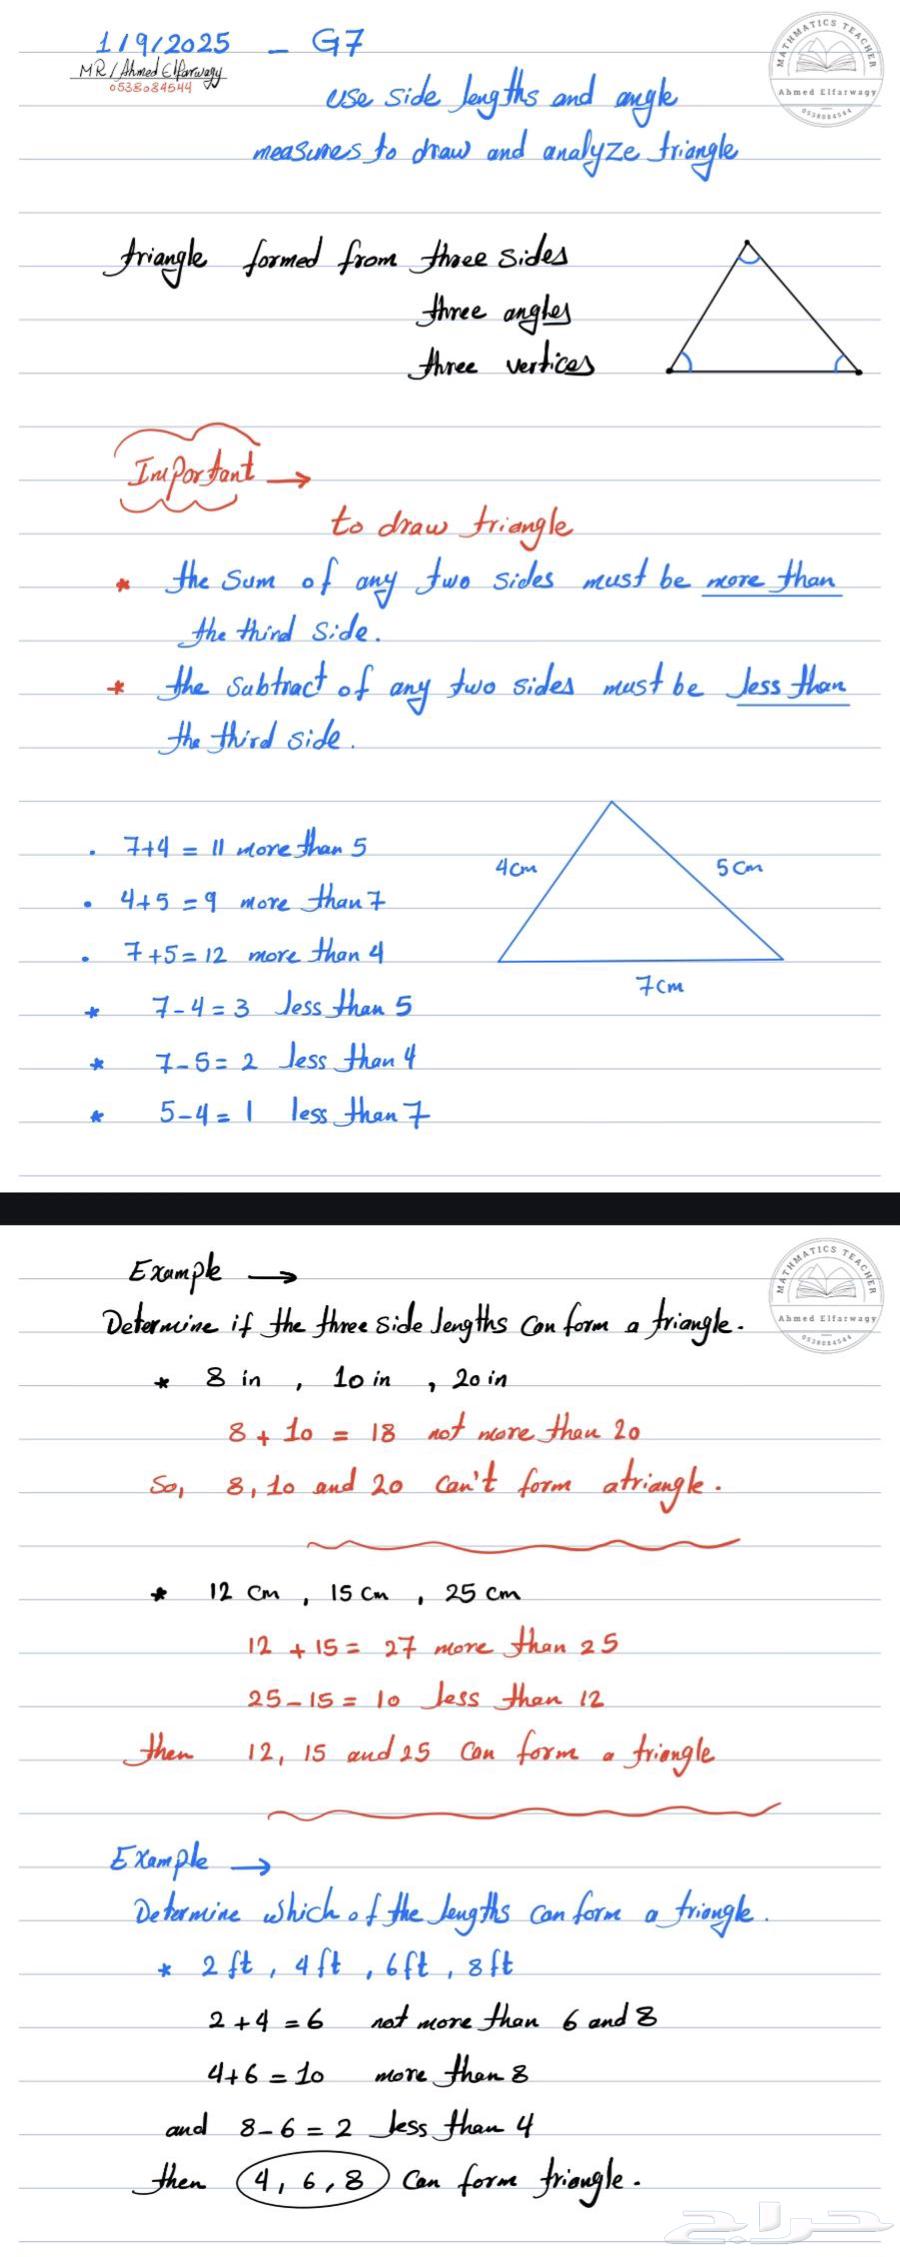 1/9/2025 - G7
MR/Ahmed Elfarwagy
0538084544
MATHEMATICS TEACHER
Ahmed Elfarwagy
0538084544
use side lengths and angle
measures to draw and analyze triangle
triangle formed from three sides
three angles
three vertices
Important →
to draw triangle
* the sum of any two sides must be more than
the third side.
* the subtract of any two sides must be less than
the third side.
. 7+4 = 11 more than 5
. 4+5 = 9 more than 7
. 7+5 = 12 more than 4
* 7-4 = 3 less than 5
* 7-5 = 2 less than 4
* 5-4 = 1 less than 7
4cm
5cm
7cm
Example →
MATHEMATICS TEACHER
Ahmed Elfarwagy
0538084544
Determine if the three side lengths can form a triangle.
* 8 in , 10 in , 20 in
8 + 10 = 18 not more than 20
So, 8, 10 and 20 can't form a triangle.
* 12 cm , 15 cm , 25 cm
12 + 15 = 27 more than 25
25 - 15 = 10 less than 12
then 12, 15 and 25 can form a triangle
Example →
Determine which of the lengths can form a triangle.
* 2 ft , 4 ft , 6 ft , 8 ft
2 + 4 = 6 not more than 6 and 8
4+6 = 10 more than 8
and 8-6 = 2 less than 4
then 4, 6, 8 can form triangle.
حراج